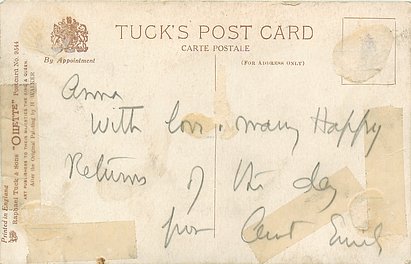 TUCK'S POST CARD
CARTE POSTALE
By Appointment
(FOR ADDRESS ONLY)
Anna
With love & many Happy
Returns of the day
from Aunt Emily
Raphael Tuck & Sons "OILETTE" Postcard No. 9544
ART PUBLISHERS TO THEIR MAJESTIES THE KING & QUEEN.
After the Original Painting by H.
Printed in England